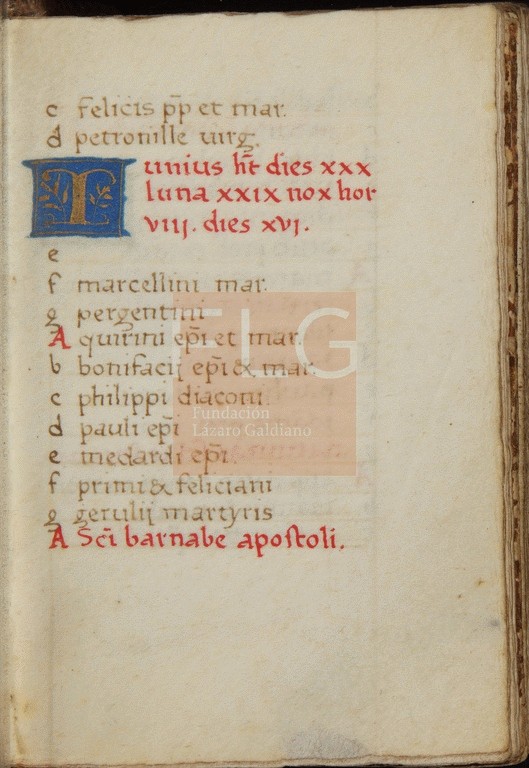 c felicis pp̄ et mar.
d petronille uirg.
Iunius ht̄ dies xxx
luna xxix nox hor
viii. dies xvj.
e
f marcellini mar.
g pergentini
A quirini ep̄i et mar.
b bonifacij ep̄i & mar.
c philippi diaconi.
d pauli ep̄i
e medardi ep̄i.
f primi & feliciani
g getulij martyris
A Sc̄i barnabe apostoli.
FLG
Fundación
Lázaro Galdiano